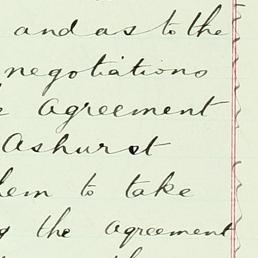 and as to the
negotiations
agreement
Ashurst
hem to take
the agreement